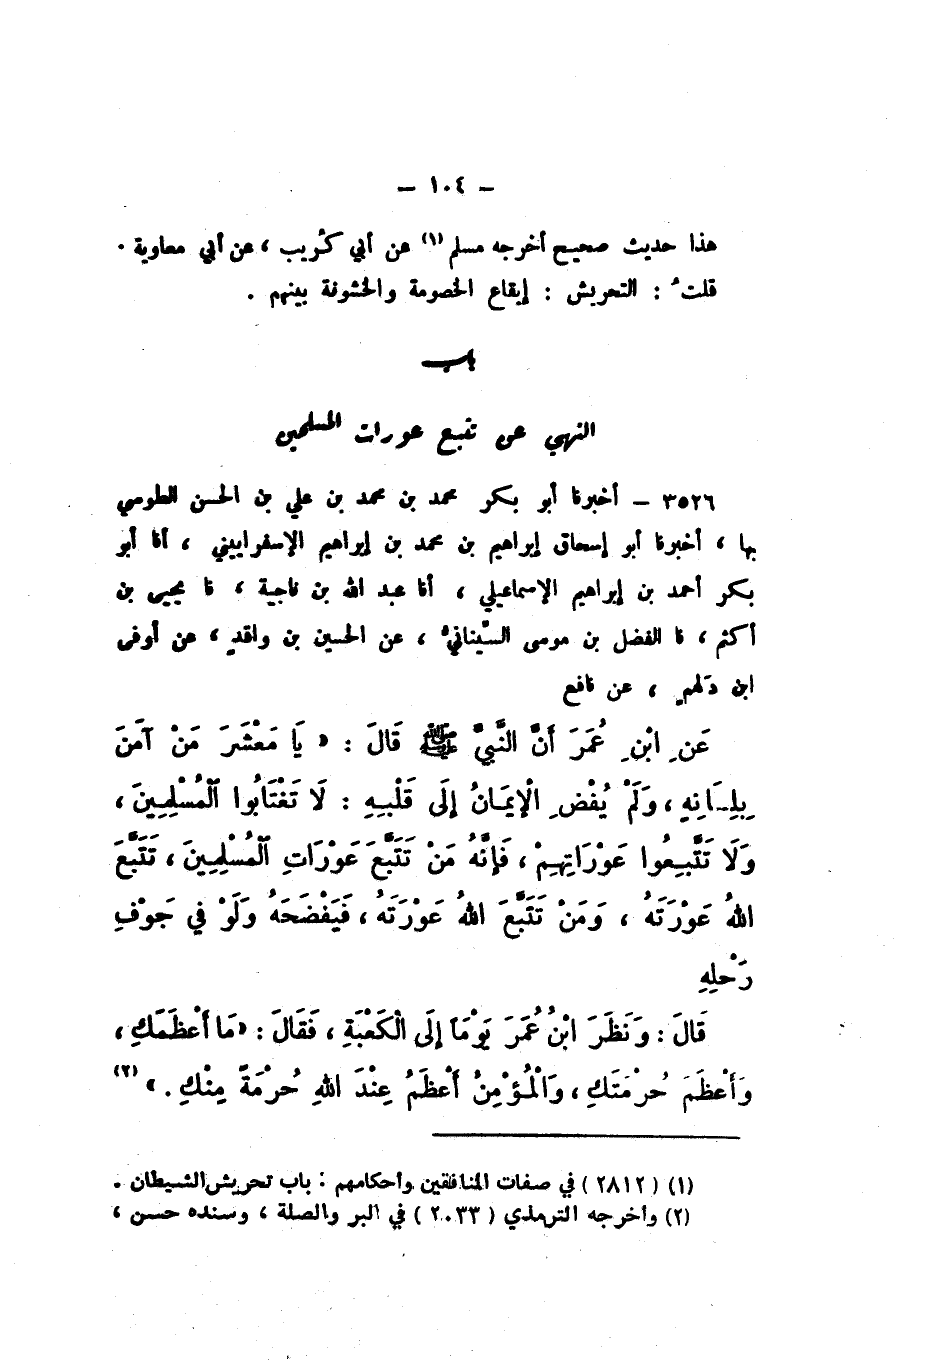 – ١٠٤ –
هذا حديث صحيح أخرجه مسلم (١) عن أبي كُريب ، عن أبي معاوية .
قلتُ : التحريش : إيقاع الخصومة والخشونة بينهم .
باب
النهي عن تتبع عورات المسلمين
٣٥٢٦ – أخبرنا أبو بكر محمد بن محمد بن علي بن الحسن الطوسي
بها ، أخبرنا أبو إسحاق إبراهيم بن محمد بن إبراهيم الإسفراييني ، أنا أبو
بكر أحمد بن إبراهيم الإسماعيلي ، أنا عبد الله بن ناجية ، نا يحيى بن
أكثم ، نا الفضل بن موسى السِّيناني ، عن الحسين بن واقدٍ ، عن أوفى
ابن دَلهمٍ ، عن نافع
عَنِ ابْنِ عُمَرَ أَنَّ النَّبِيَّ ﷺ قَالَ : « يَا مَعْشَرَ مَنْ آمَنَ
بِلِسَانِهِ ، وَلَمْ يُفْضِ الْإِيمَانُ إِلَى قَلْبِهِ : لَا تَغْتَابُوا الْمُسْلِمِينَ ،
وَلَا تَتَّبِعُوا عَوْرَاتِهِمْ ، فَإِنَّهُ مَنْ تَتَبَّعَ عَوْرَاتِ الْمُسْلِمِينَ ، تَتَبَّعَ
اللهُ عَوْرَتَهُ ، وَمَنْ تَتَبَّعَ اللهُ عَوْرَتَهُ ، فَيَفْضَحَهُ وَلَوْ فِي جَوْفِ
رَحْلِهِ
قَالَ : وَنَظَرَ ابْنُ عُمَرَ يَوْمَاً إِلَى الْكَعْبَةِ ، فَقَالَ : « مَا أَعْظَمَكِ ،
وَأَعْظَمَ حُرْمَتَكِ ، وَالْمُؤْمِنُ أَعْظَمُ عِنْدَ اللهِ حُرْمَةً مِنْكِ . » (٢)
(١) ( ٢٨١٢ ) في صفات المنافقين وأحكامهم : باب تحريش الشيطان .
(٢) وأخرجه الترمذي ( ٢٠٣٣ ) في البر والصلة ، وسنده حسن ،